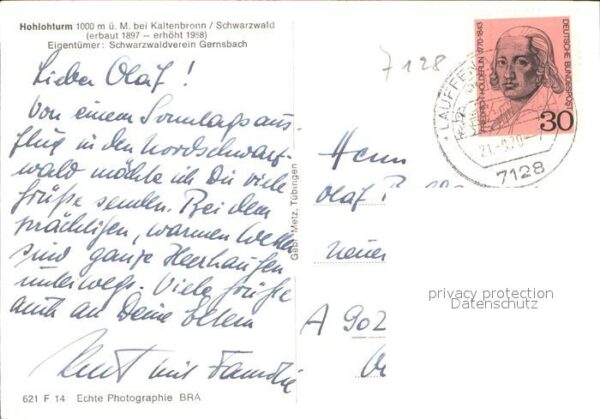 Hohlohturm 1000 m ü. M. bei Kaltenbronn / Schwarzwald
(erbaut 1897 — erhöht 1968)
Eigentümer: Schwarzwaldverein Gernsbach
Lieber Olaf!
Von einem Sonntagsaus-
flug in den Nordschwarz-
wald möchte ich Dir viele
Grüße senden. Bei dem
prächtigen, warmen Wetter
sind ganze Heerhaufen
unterwegs. Viele Grüße
auch an Deine Eltern
Kurt mit Familie
621 F 14 Echte Photographie BRA
Gebr. Metz, Tübingen
7128
LAUFFEN
7128
FRIEDRICH HÖLDERLIN 1770-1843
DEUTSCHE BUNDESPOST
30
Herrn
Olaf
A 902
privacy protection
Datenschutz